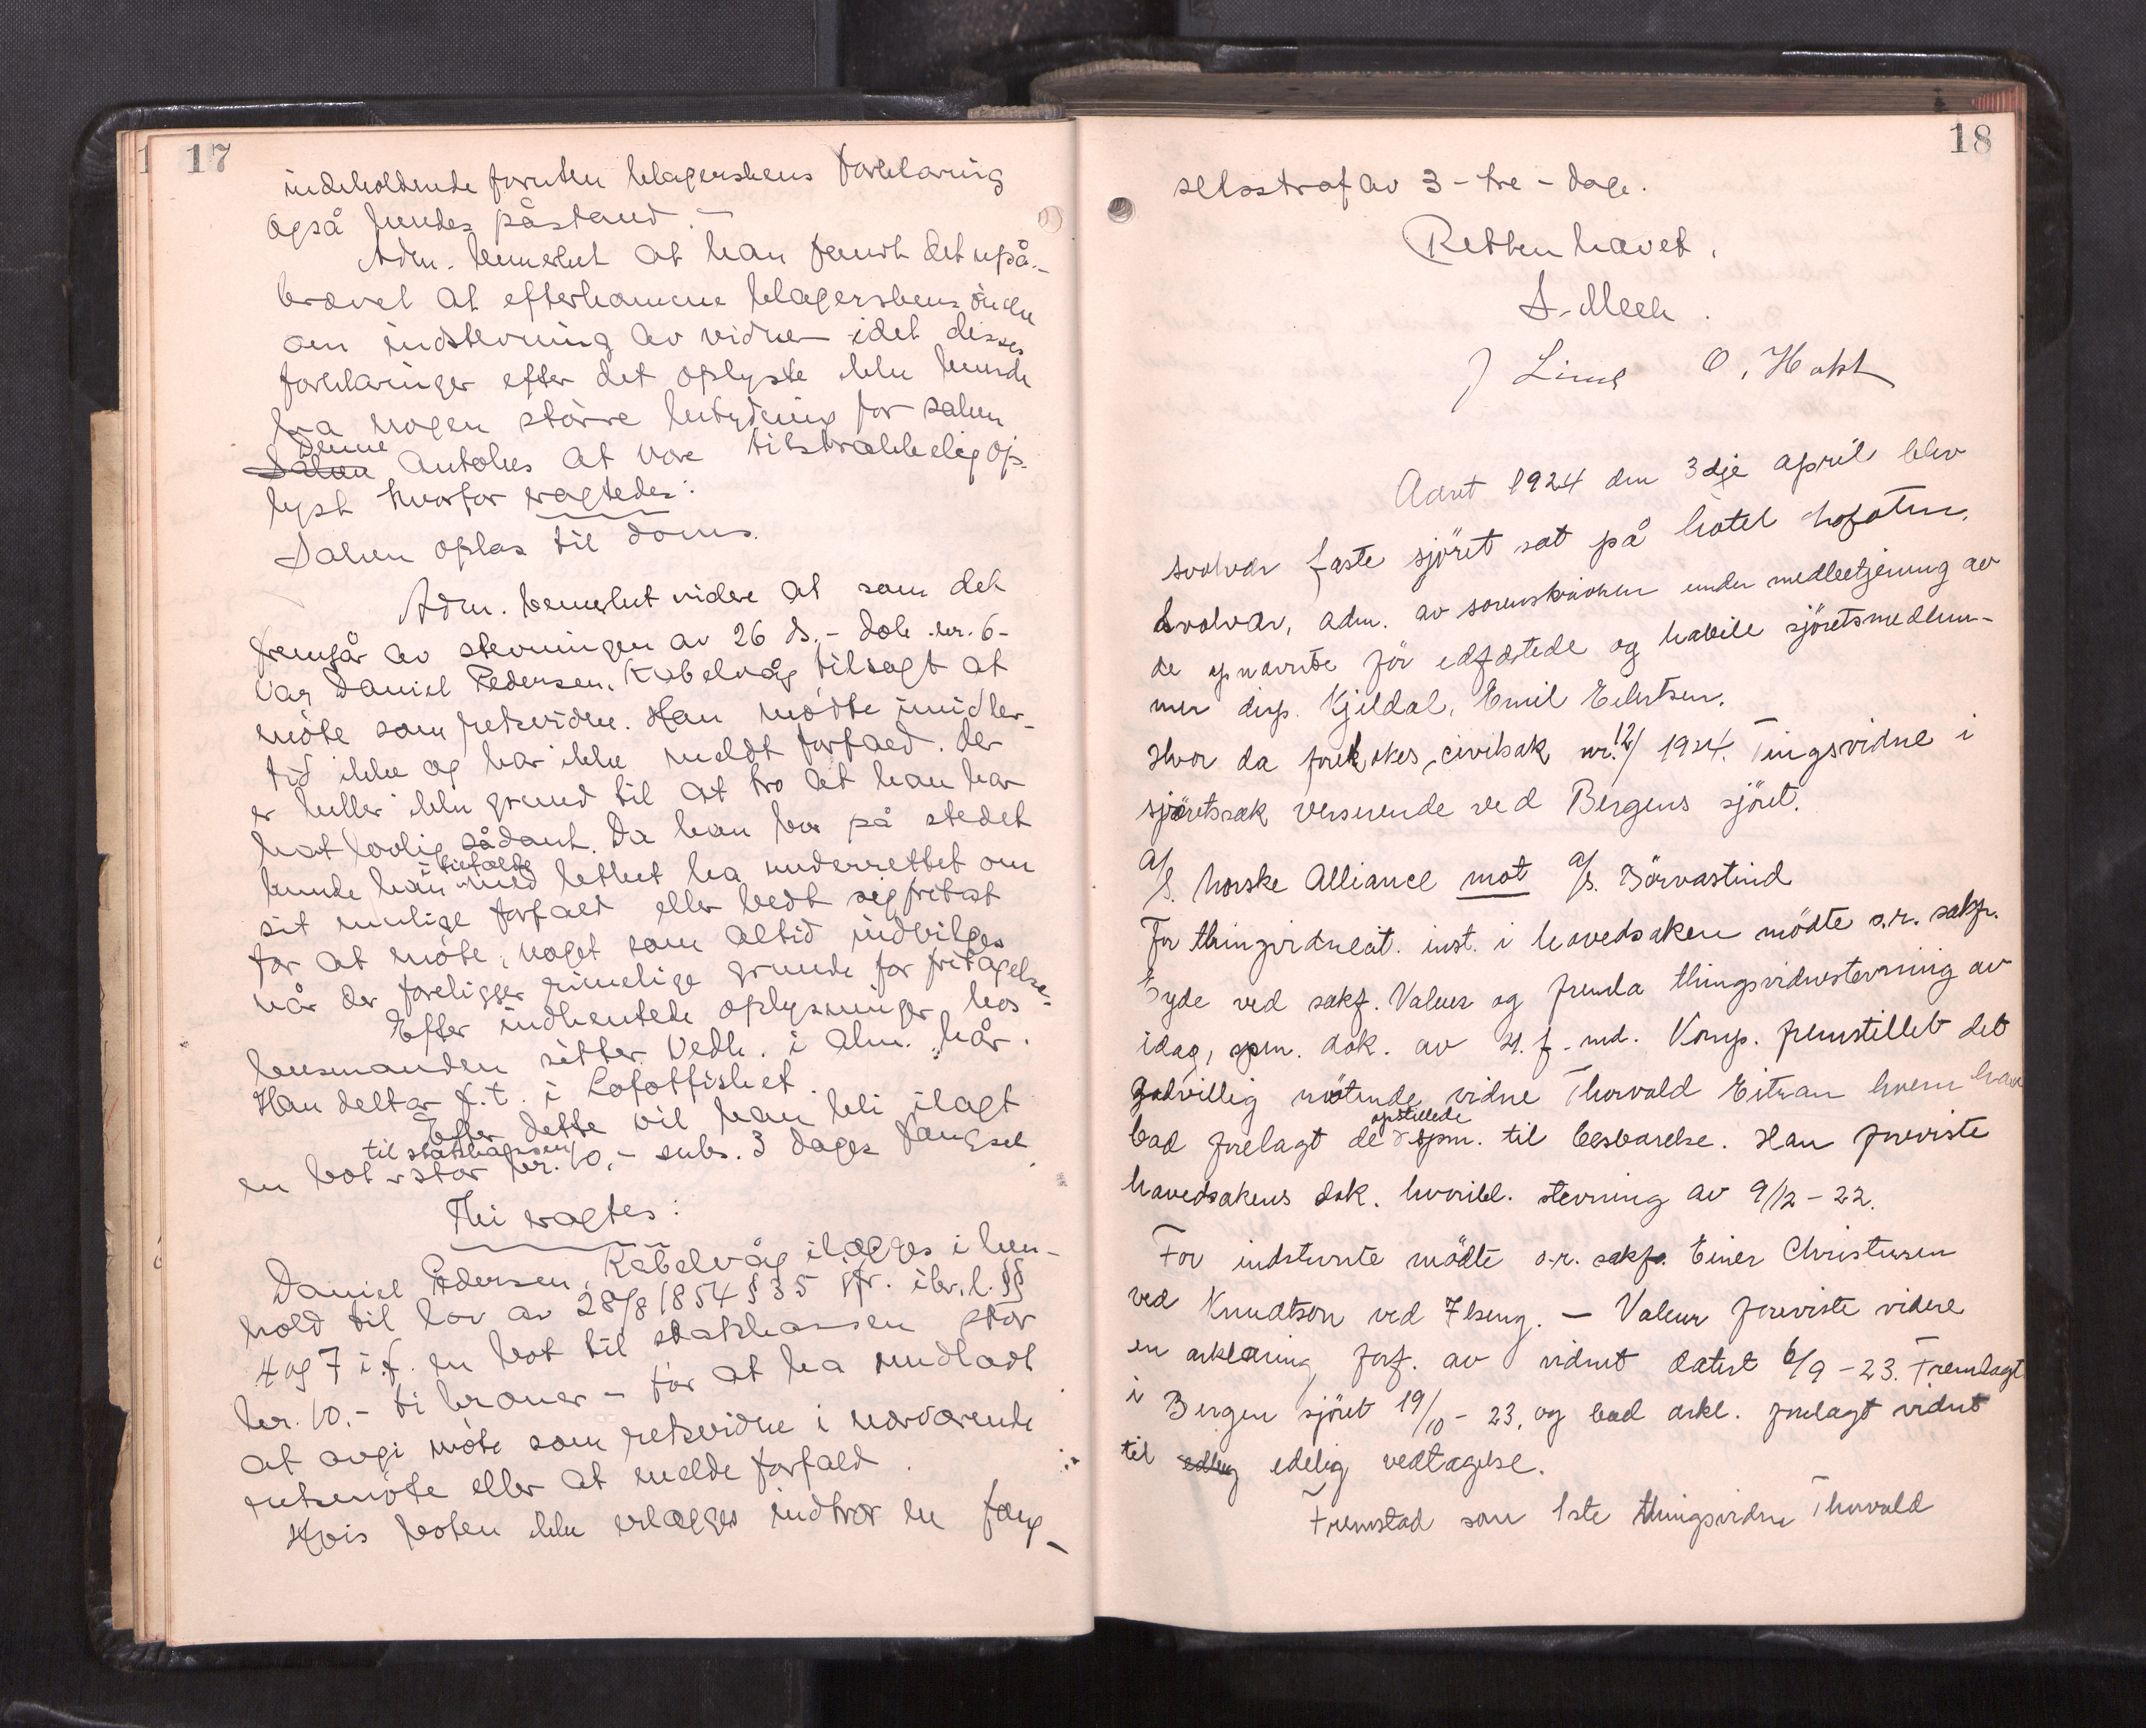 17
indeholdende foruten klagerskens forklaring
også hendes påstand. –
Adm. bemerket at han fandt det upå-
krævet at efterkomme klagerskens önske
om indstevning av vidner idet disses
forklaringer efter det oplyste ikke kunde
ha nogen större betydning for saken
Denne
Saken antokes at være tilstrækkelig op-
lyst hvorfor eragtedes:
Saken optas til doms.
Adm. bemerket videre at som det
fremgår av stevningen av 26 ds. – dok. nr. 6 –
var Daniel Pedersen, Kabelvåg tilsagt at
möte som retsvidne. Han mödte imidler-
tid ikke og har ikke meldt forfald. Der
er heller ikke grund til at tro at han har
hat lovlig sådant. Da han bor på stedet
i tilfælde
kunde han med lethet ha underrettet om
sit mulige forfald eller bedt sig fritat
for at möte, noget som altid indvilges
når der foreligger rimelige grunde for fritagelse.
Efter indhentede oplysninger hos
lensmanden sitter vedk. i alm. kår.
Han deltar f.t. i Lofotfisket.
Efter dette vil han bli ilagt
til statskassen
en bot stor kr. 10,- subs. 3 dages fængsel.
Thi eragtes:
Daniel Pedersen, Kabelvåg ilægges i hen-
hold til lov av 28/8 1854 § 35 jfr. ikr. l. §§
4 og 7 i.f. en bot til statskassen stor
kr. 10.- ti kroner – for at ha undladt
at avgi möte som retsvidne i nærværende
retsmöte eller at melde forfald.
Hvis boten ikke erlægges indtrær en fæng-
18
selsstraf av 3 – tre – dage.
Retten hævet.
A. Meek.
J Lind O. Hokt
Aaret 1924 den 3dje april blev
Svolvær faste sjöret sat på hotel Lofoten,
Svolvær, adm. av sorenskriveren under medbetjening av
de opnævnte för edfæstede og habile sjöretsmedlem-
mer disp. Kjeldal, Emil Eilertsen.
Hvor da foretokes, civilsak nr. 12/1924. Tingsvidne i
sjöretssak verserende ved Bergens sjöret.
A/S. Norske Alliance mot A/S. Börvastind
For thingsvidnecit. inst. i hovedsaken mödte o.r. sakf.
Eyde ved sakf. Valeur og fremla thingsvidnestevning av
idag, spm. dok. av 21. f. md. Komp. fremstillet det
godvillig mötende vidne Thorvald Eitran hvem han
opstillede
bad forelagt de spm. til besvarelse. Han foreviste
hovedsakens dok. hvoribl. stevning av 9/12 – 22.
For indstevnte mödte o.r. sakf. Einer Christensen
ved Knudtson ved Ilseng. – Valeur foreviste videre
en erklæring forf. av vidnet datert 6/9 – 23. Fremlagt
i Bergen sjöret 19/10 – 23, og bad erkl. forelagt vidnet
til edlig edelig vedtagelse.
Fremstod som 1ste thingsvidne Thorvald